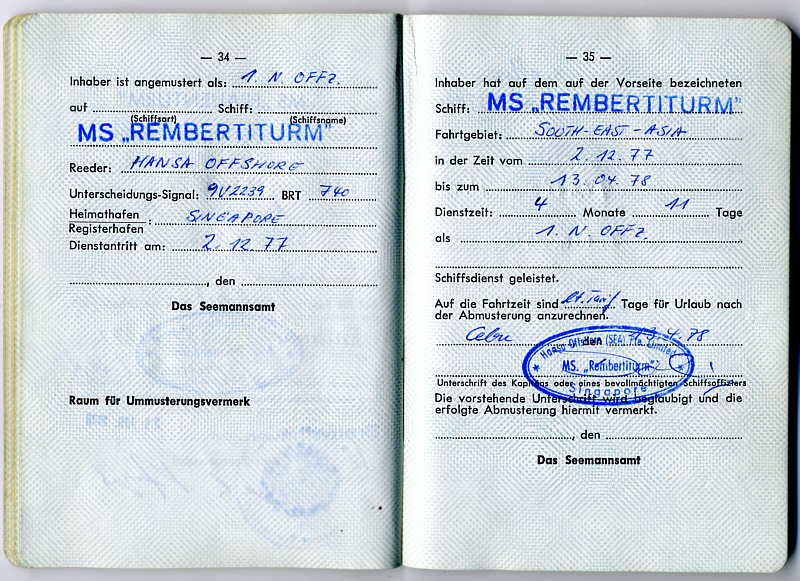 — 34 —
Inhaber ist angemustert als: 1. N. OFFZ.
auf Schiff:
(Schiffsart) (Schiffsname)
MS „REMBERTITURM"
Reeder: HANSA OFFSHORE
Unterscheidungs-Signal: 9V2239 BRT 740
Heimathafen
Registerhafen : SINGAPORE
Dienstantritt am: 2. 12. 77
, den
Das Seemannsamt
Raum für Ummusterungsvermerk
— 35 —
Inhaber hat auf dem auf der Vorseite bezeichneten
Schiff: MS „REMBERTITURM"
Fahrtgebiet: SOUTH-EAST-ASIA
in der Zeit vom 2. 12. 77
bis zum 13. 04. 78
Dienstzeit: 4 Monate 11 Tage
als 1. N. OFFZ.
Schiffsdienst geleistet.
Auf die Fahrtzeit sind lt. Tarif Tage für Urlaub nach
der Abmusterung anzurechnen.
Cebu, den 13.4.78
Hansa Offshore (SEA) Pte. Limited
MS. „Rembertiturm"
Singapore
Unterschrift des Kapitäns oder eines bevollmächtigten Schiffsoffiziers
Die vorstehende Unterschrift wird beglaubigt und die
erfolgte Abmusterung hiermit vermerkt.
, den
Das Seemannsamt